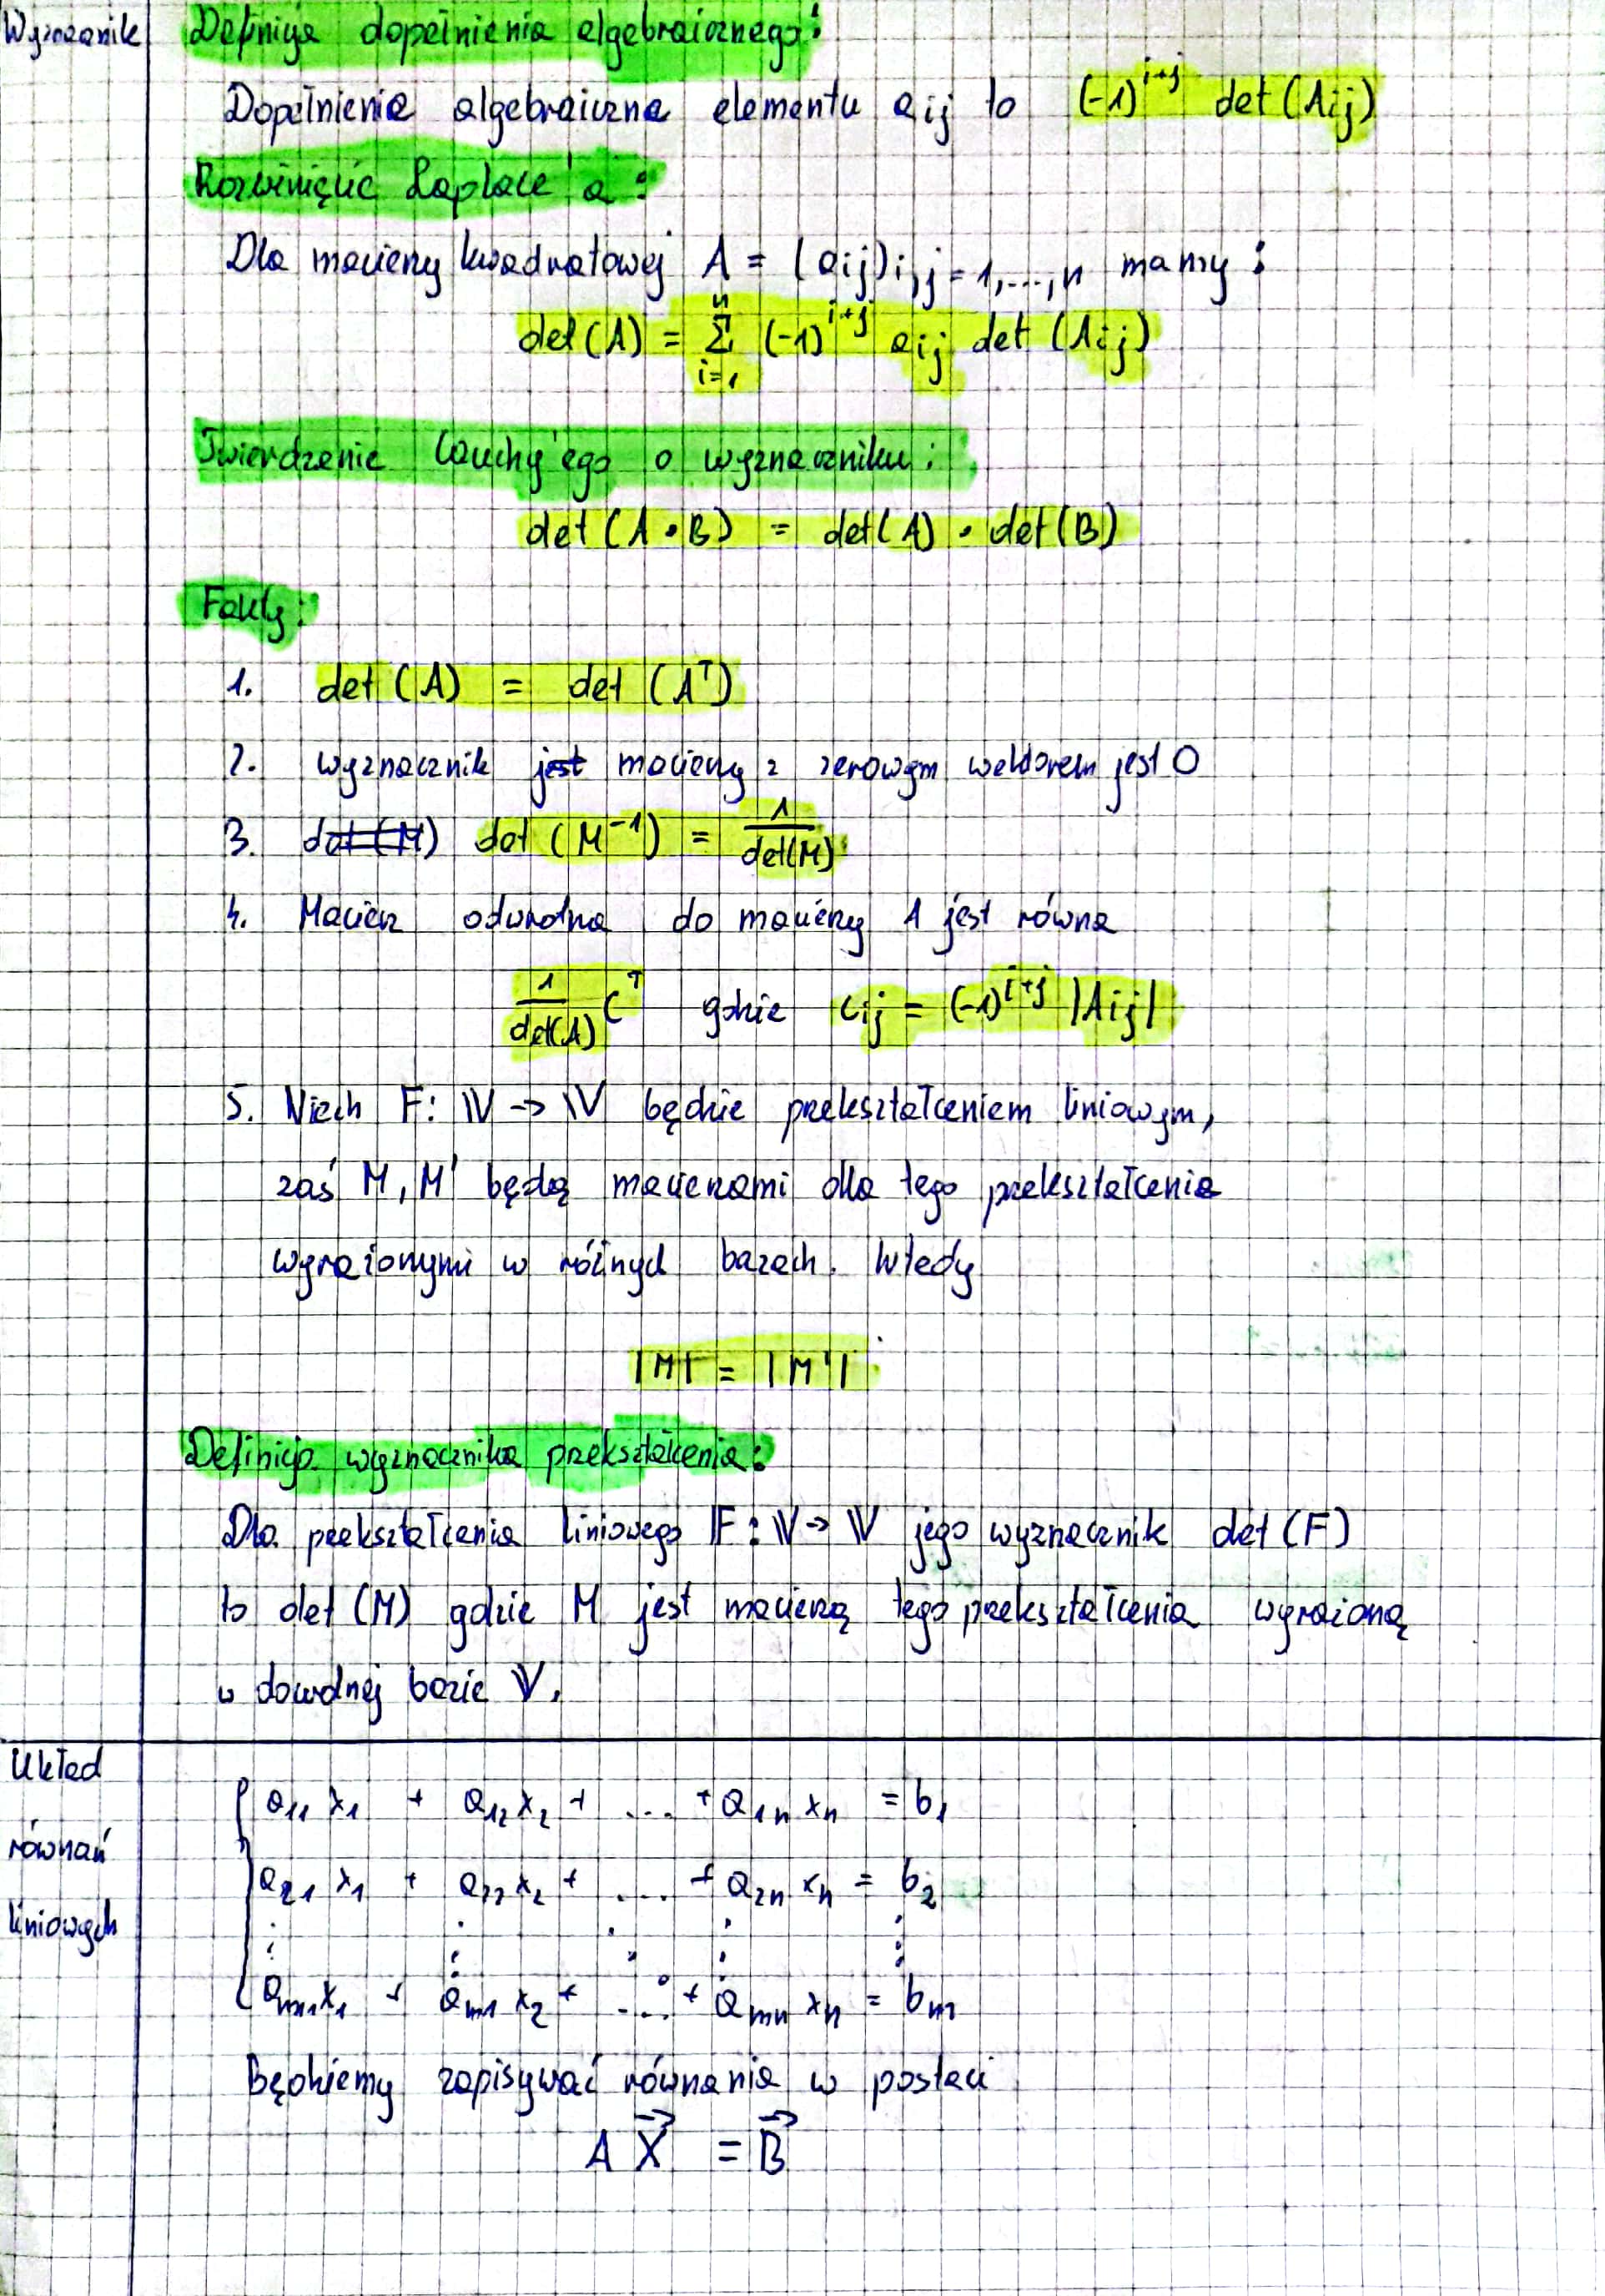 Wyznacznik
Definicja dopełnienia algebraicznego:
Dopełnienie algebraiczne elementu a_ij to (-1)^{i+j} det(A_ij)
Rozwinięcie Laplace'a:
Dla macierzy kwadratowej A = (a_ij)_{i,j=1,...,n} mamy:
det(A) = Σ_{i=1}^{n} (-1)^{i+j} a_ij det(A_ij)
Twierdzenie Cauchy'ego o wyznaczniku:
det(A · B) = det(A) · det(B)
Fakty:
1. det(A) = det(A^T)
2. wyznacznik jest macierzy z zerowym wektorem jest 0
3. det(M) det(M^{-1}) = 1/det(M)
4. Macierz odwrotna do macierzy A jest równa
1/det(A) C^T gdzie c_ij = (-1)^{i+j} |A_ij|
5. Niech F: V -> V będzie przekształceniem liniowym,
zaś M, M' będą macierzami dla tego przekształcenia
wyrażonymi w różnych bazach. Wtedy
|M| = |M'|
Definicja wyznacznika przekształcenia:
Dla przekształcenia liniowego F: V -> V jego wyznacznik det(F)
to det(M) gdzie M jest macierzą tego przekształcenia wyrażoną
w dowolnej bazie V.
Układ
równań
liniowych
a_11 x_1 + a_12 x_2 + .... + a_1n x_n = b_1
a_21 x_1 + a_22 x_2 + .... + a_2n x_n = b_2
a_m1 x_1 + a_m1 x_2 + .... + a_mn x_n = b_m
Będziemy zapisywać równania w postaci
A X⃗ = B⃗